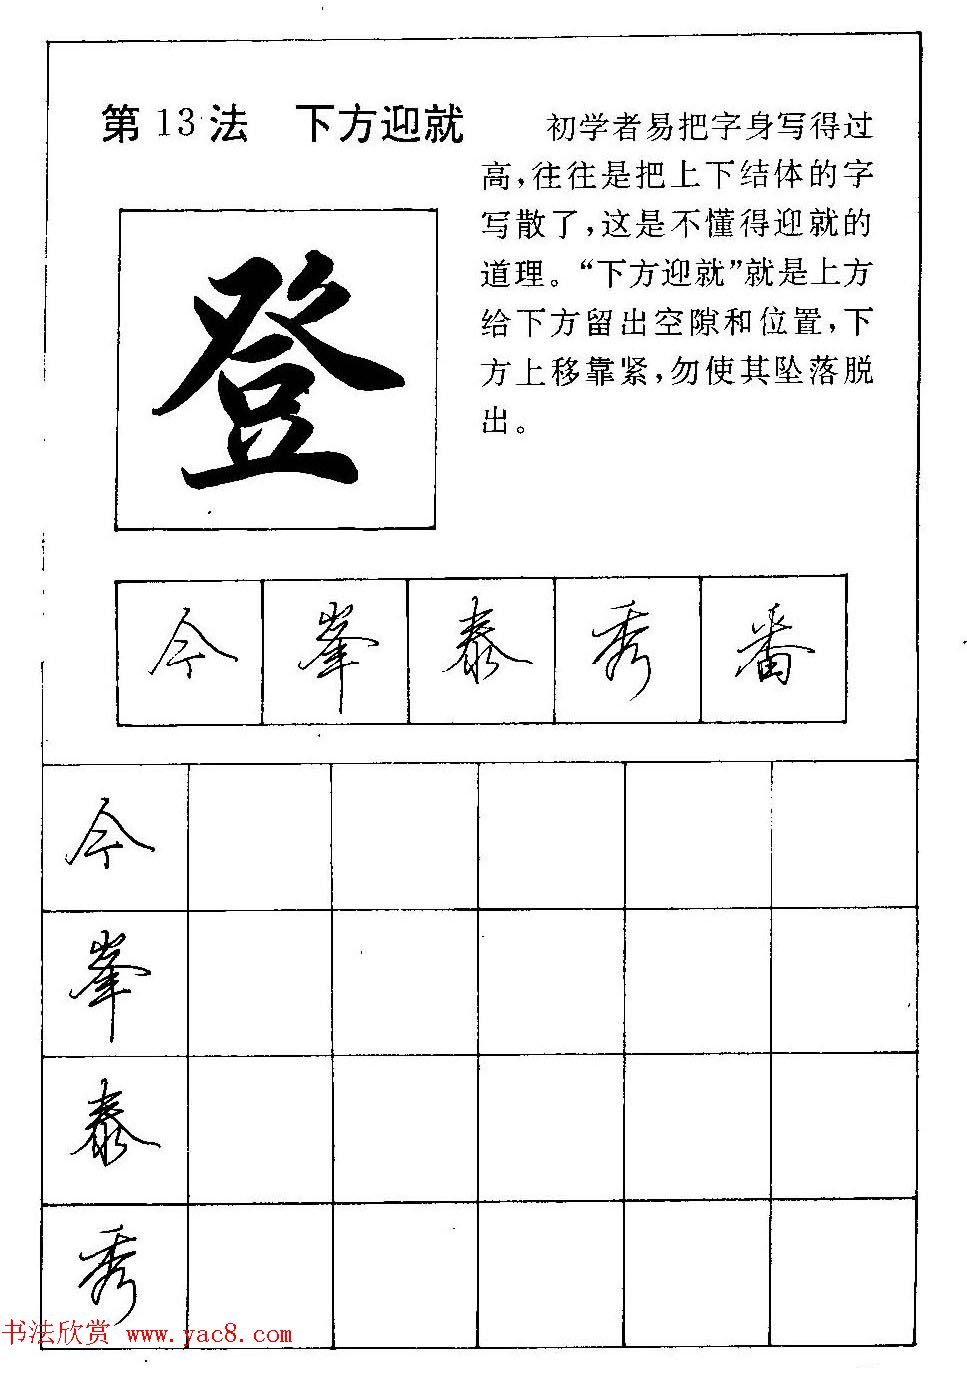 第13法　下方迎就
初学者易把字身写得过
高，往往是把上下结体的字
写散了，这是不懂得迎就的
道理。“下方迎就”就是上方
给下方留出空隙和位置，下
方上移靠紧，勿使其坠落脱
出。
登
今 峯 泰 秀 番
今
峯
泰
秀
书法欣赏 www.yac8.com